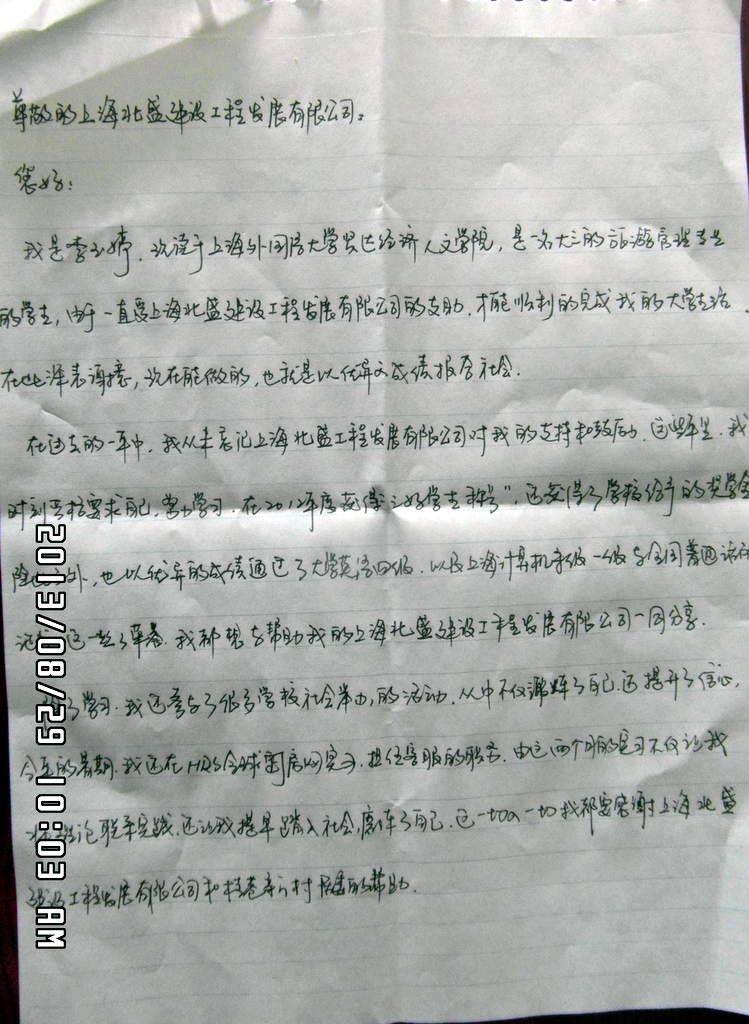 尊敬的上海北盛建设工程发展有限公司:
您好:
我是李玉婷,就读于上海外国语大学贤达经济人文学院,是一名大三的旅游管理专业
的学生,由于一直受上海北盛建设工程发展有限公司的支助,才能顺利的完成我的大学生活.
在此深表谢意,现在能做的,也就是以优异文成绩报答社会.
在过去的一年中,我从未忘记上海北盛工程发展有限公司对我的支持和鼓励.这些年里,我
时刻严格要求自己,努力学习.在2012年度获得三好学生称号",还获得了学校给予的奖学金
除此之外,也以优异的成绩通过了大学英语四级.以及上海计算机等级一级与全国普通话
这一些荣誉.我都想与帮助我的上海北盛建设工程发展有限公司一同分享.
除了学习.我还参与了很多学校社会举办,的活动.从中不仅锻炼了自己.还提升了信心.
今年的暑期.我还在HRS全球订房网实习.担任客服的职务.由这两个月的实习不仅让我
把理论联系实践.还让我提早踏入社会,磨练了自己.这一切的一切我都要感谢上海北盛
建设工程发展有限公司和村居委的帮助.
2013/08/29 10:03 AM